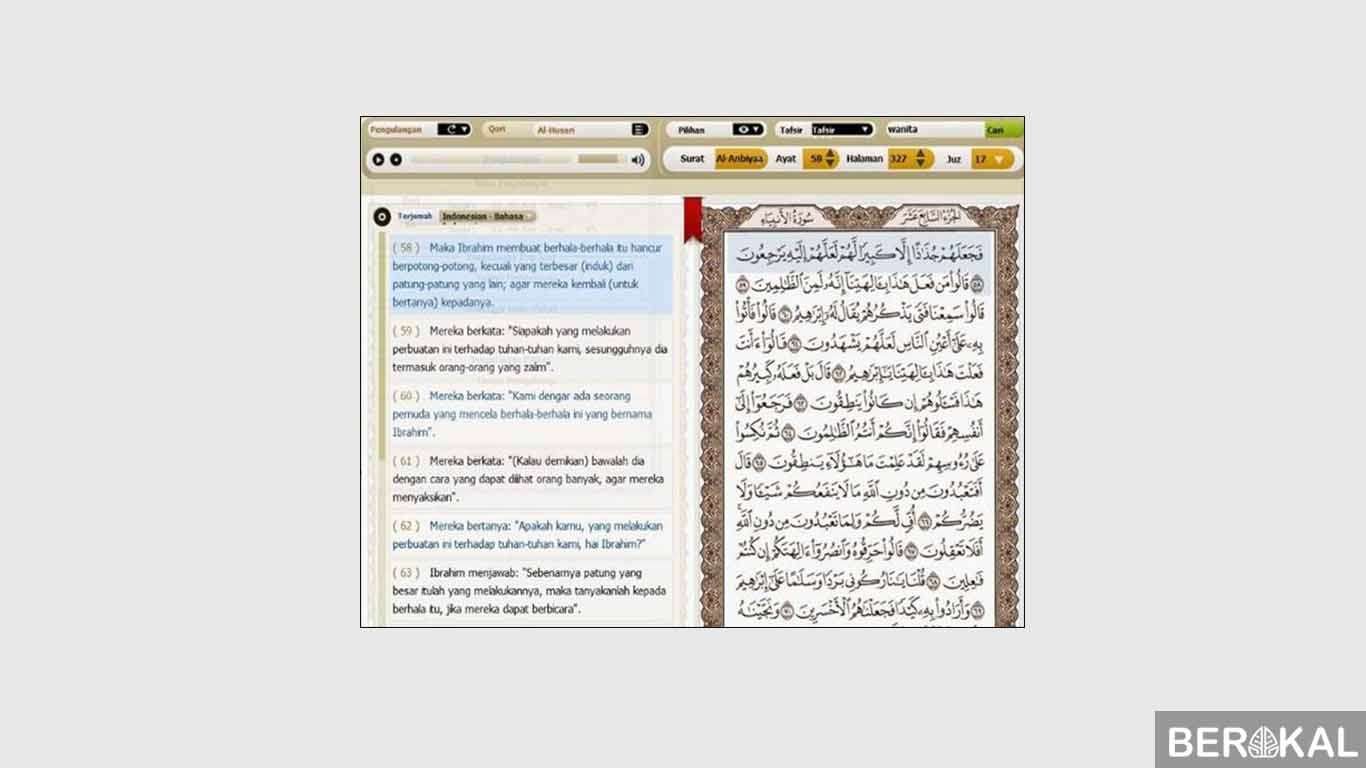 Pengulangan Qori Al-Husari
Pilihan Tafsir Tafsir wanita Cari
Surat Al-Anbiyaa Ayat 58 Halaman 327 Juz 17
Terjemah Indonesian - Bahasa
( 58 ) Maka Ibrahim membuat berhala-berhala itu hancur
berpotong-potong, kecuali yang terbesar (induk) dari
patung-patung yang lain; agar mereka kembali (untuk
bertanya) kepadanya.
( 59 ) Mereka berkata: "Siapakah yang melakukan
perbuatan ini terhadap tuhan-tuhan kami, sesungguhnya dia
termasuk orang-orang yang zalim".
( 60 ) Mereka berkata: "Kami dengar ada seorang
pemuda yang mencela berhala-berhala ini yang bernama
Ibrahim".
( 61 ) Mereka berkata: "(Kalau demikian) bawalah dia
dengan cara yang dapat dilihat orang banyak, agar mereka
menyaksikan".
( 62 ) Mereka bertanya: "Apakah kamu, yang melakukan
perbuatan ini terhadap tuhan-tuhan kami, hai Ibrahim?"
( 63 ) Ibrahim menjawab: "Sebenarnya patung yang
besar itulah yang melakukannya, maka tanyakanlah kepada
berhala itu, jika mereka dapat berbicara".
الجزء السابع عشر سورة الأنبياء
فَجَعَلَهُمْ جُذَٰذًا إِلَّا كَبِيرًا لَّهُمْ لَعَلَّهُمْ إِلَيْهِ يَرْجِعُونَ
٥٨ قَالُوا۟ مَن فَعَلَ هَٰذَا بِـَٔالِهَتِنَآ إِنَّهُۥ لَمِنَ ٱلظَّٰلِمِينَ ٥٩
قَالُوا۟ سَمِعْنَا فَتًى يَذْكُرُهُمْ يُقَالُ لَهُۥٓ إِبْرَٰهِيمُ ٦٠ قَالُوا۟ فَأْتُوا۟
بِهِۦ عَلَىٰٓ أَعْيُنِ ٱلنَّاسِ لَعَلَّهُمْ يَشْهَدُونَ ٦١ قَالُوٓا۟ ءَأَنتَ
فَعَلْتَ هَٰذَا بِـَٔالِهَتِنَا يَٰٓإِبْرَٰهِيمُ ٦٢ قَالَ بَلْ فَعَلَهُۥ كَبِيرُهُمْ
هَٰذَا فَسْـَٔلُوهُمْ إِن كَانُوا۟ يَنطِقُونَ ٦٣ فَرَجَعُوٓا۟ إِلَىٰٓ
أَنفُسِهِمْ فَقَالُوٓا۟ إِنَّكُمْ أَنتُمُ ٱلظَّٰلِمُونَ ٦٤ ثُمَّ نُكِسُوا۟
عَلَىٰ رُءُوسِهِمْ لَقَدْ عَلِمْتَ مَا هَٰٓؤُلَآءِ يَنطِقُونَ ٦٥ قَالَ
أَفَتَعْبُدُونَ مِن دُونِ ٱللَّهِ مَا لَا يَنفَعُكُمْ شَيْـًٔا وَلَا
يَضُرُّكُمْ ٦٦ أُفٍّ لَّكُمْ وَلِمَا تَعْبُدُونَ مِن دُونِ ٱللَّهِ
أَفَلَا تَعْقِلُونَ ٦٧ قَالُوا۟ حَرِّقُوهُ وَٱنصُرُوٓا۟ ءَالِهَتَكُمْ إِن كُنتُمْ
فَٰعِلِينَ ٦٨ قُلْنَا يَٰنَارُ كُونِى بَرْدًا وَسَلَٰمًا عَلَىٰٓ إِبْرَٰهِيمَ
٦٩ وَأَرَادُوا۟ بِهِۦ كَيْدًا فَجَعَلْنَٰهُمُ ٱلْأَخْسَرِينَ ٧٠ وَنَجَّيْنَٰهُ
BEROKAL